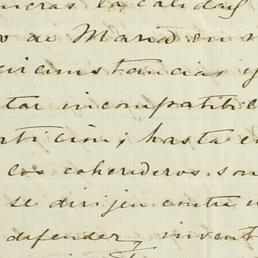 la calidad
de Maria en
circunstancias y
tar incompatible
rticion; hasta e
los coherederos son
se dirijen contra
defender, invent